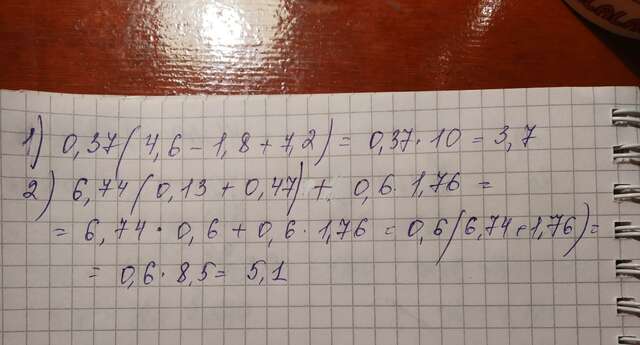 1) 0,37(4,6 - 1,8 + 7,2) = 0,37·10 = 3,7
2) 6,74(0,13 + 0,47) + 0,6·1,76 =
= 6,74·0,6 + 0,6·1,76 = 0,6(6,74+1,76)=
= 0,6·8,5 = 5,1